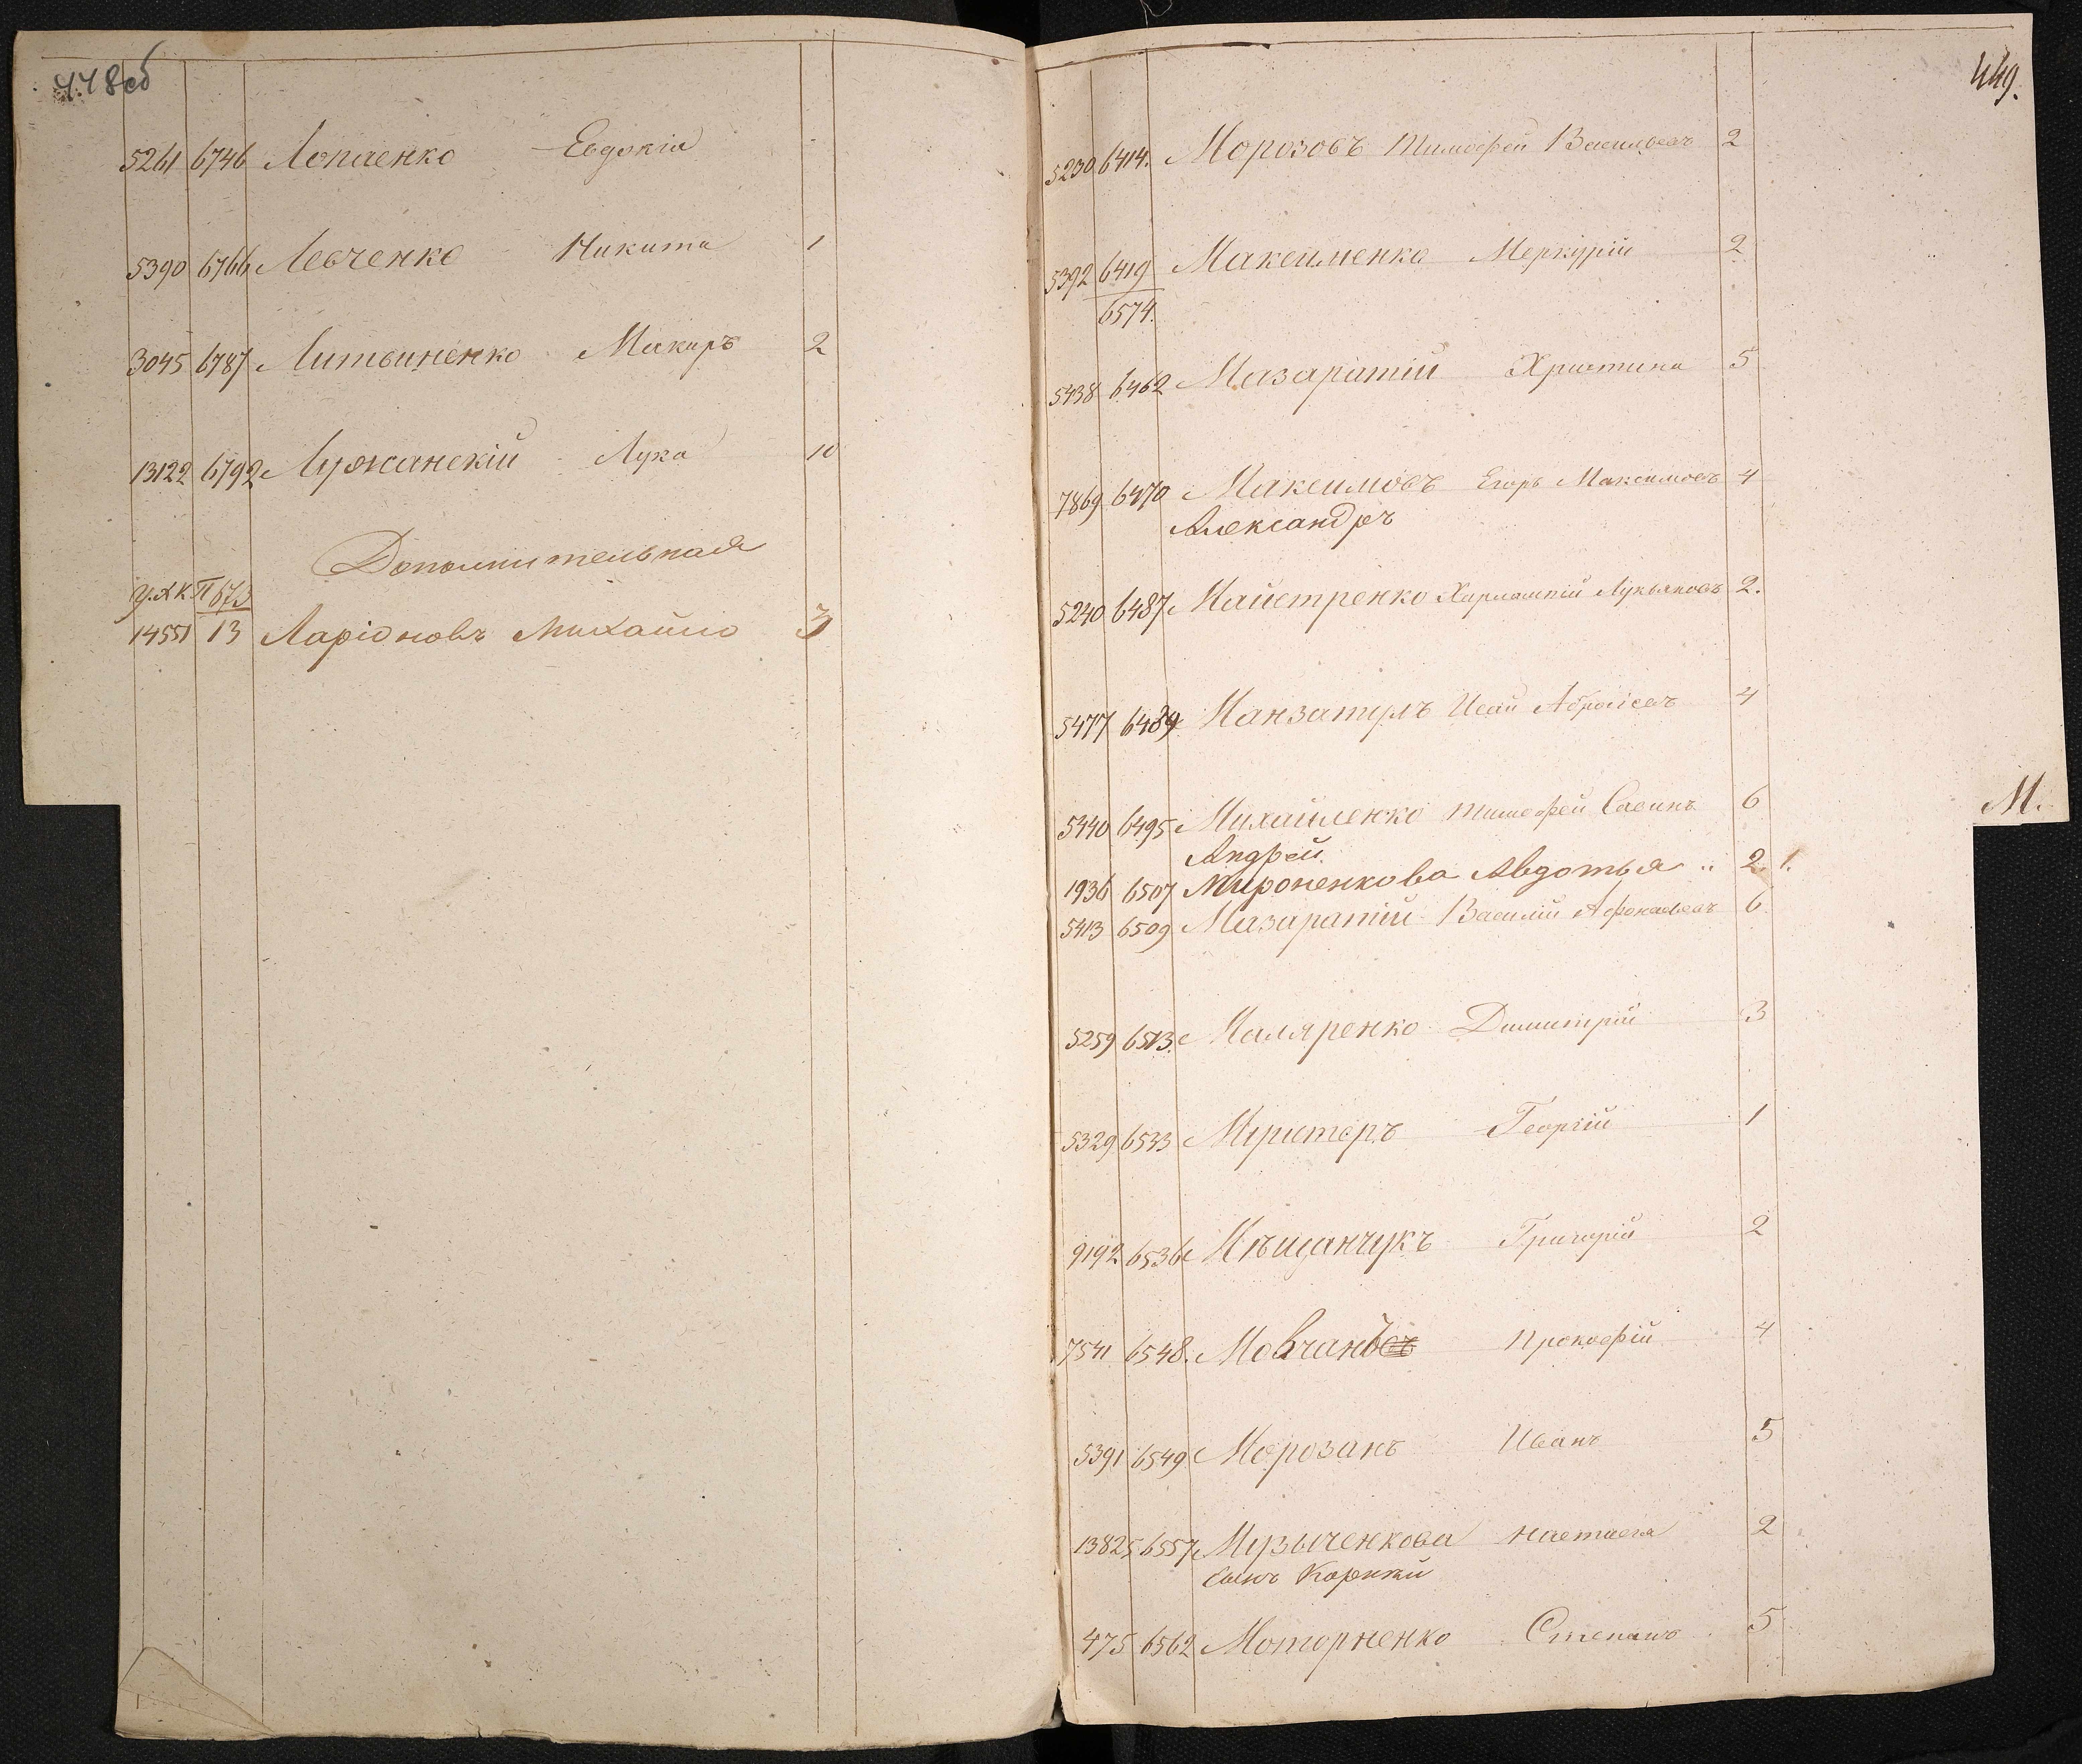 448об
5261 6746 Лопаенко Евдокія -
5390 6766 Левченко Никита 1
3045 6787 Литвиненко Макаръ 2
13122 6792 Лужанскій Лука 10
Дополнительная
14551 13 Ларіоновъ Михайло 3
449.
5230 6414. Морозовъ Тимофей Васильевъ 2
5392 6419 Максименко Меркурій 2
6574.
5438 6462 Мазаратій Христина 5
7869 6470 Максимовъ Егоръ Максимовъ 4
Александръ
5240 6487 Майстренко Харлампій Лукьяновъ 2.
5477 6489 Манзатулъ Исай 4
М.
5440 6495 Михайленко Тимофей Савинъ 6
Андрей
1936 6507 Мироненкова Авдотья .. 2. 1.
5413 6509 Мазаратій Василій Афонасьевъ 6
5259 6513. Маляренко Димитрій 3
5329 6533 Муристеръ Георгій 1
9192 6536 Мѣщанчукъ Григорій 2
7541 6548. Мовчанъ Прокофій 4
5391 6549 Морозанъ Иванъ 5
13825 6557 Музыченкова Настасія 2
Сынъ Корнѣй
475 6562 Моторненко Степанъ 5